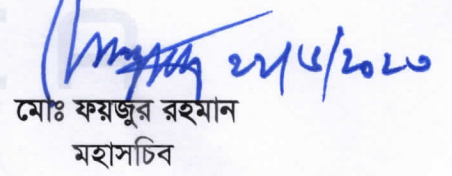 ২২/৬/২০২৩
মোঃ ফয়জুর রহমান
মহাসচিব